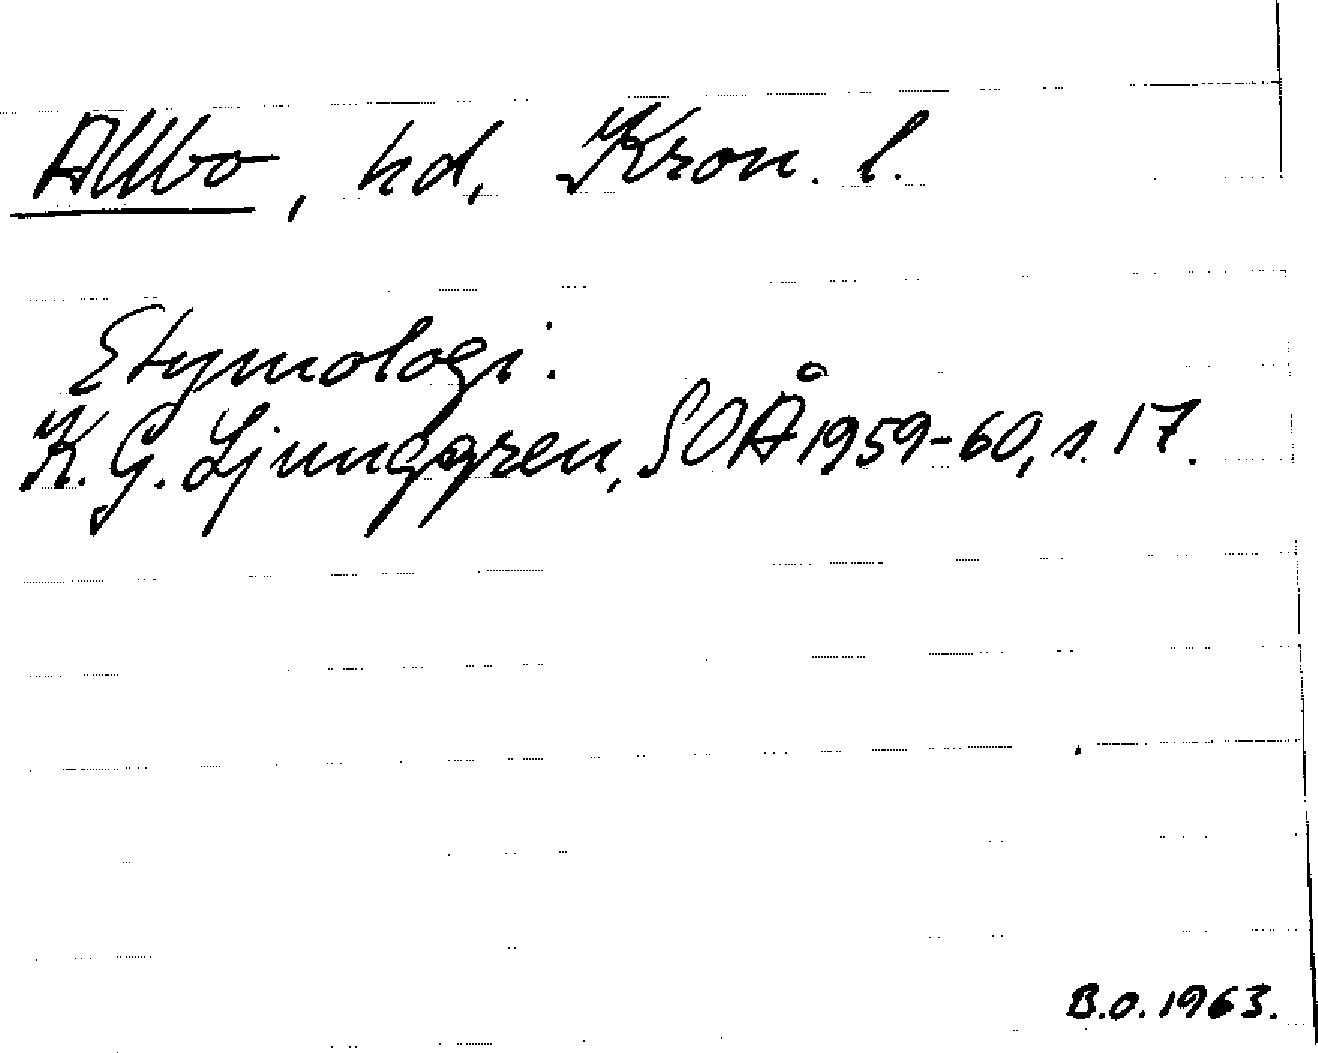 Allbo, hd, Kron. l.
Etymologi:
K. G. Ljunggren, SOÅ 1959-60, s. 17.
B.O. 1963.